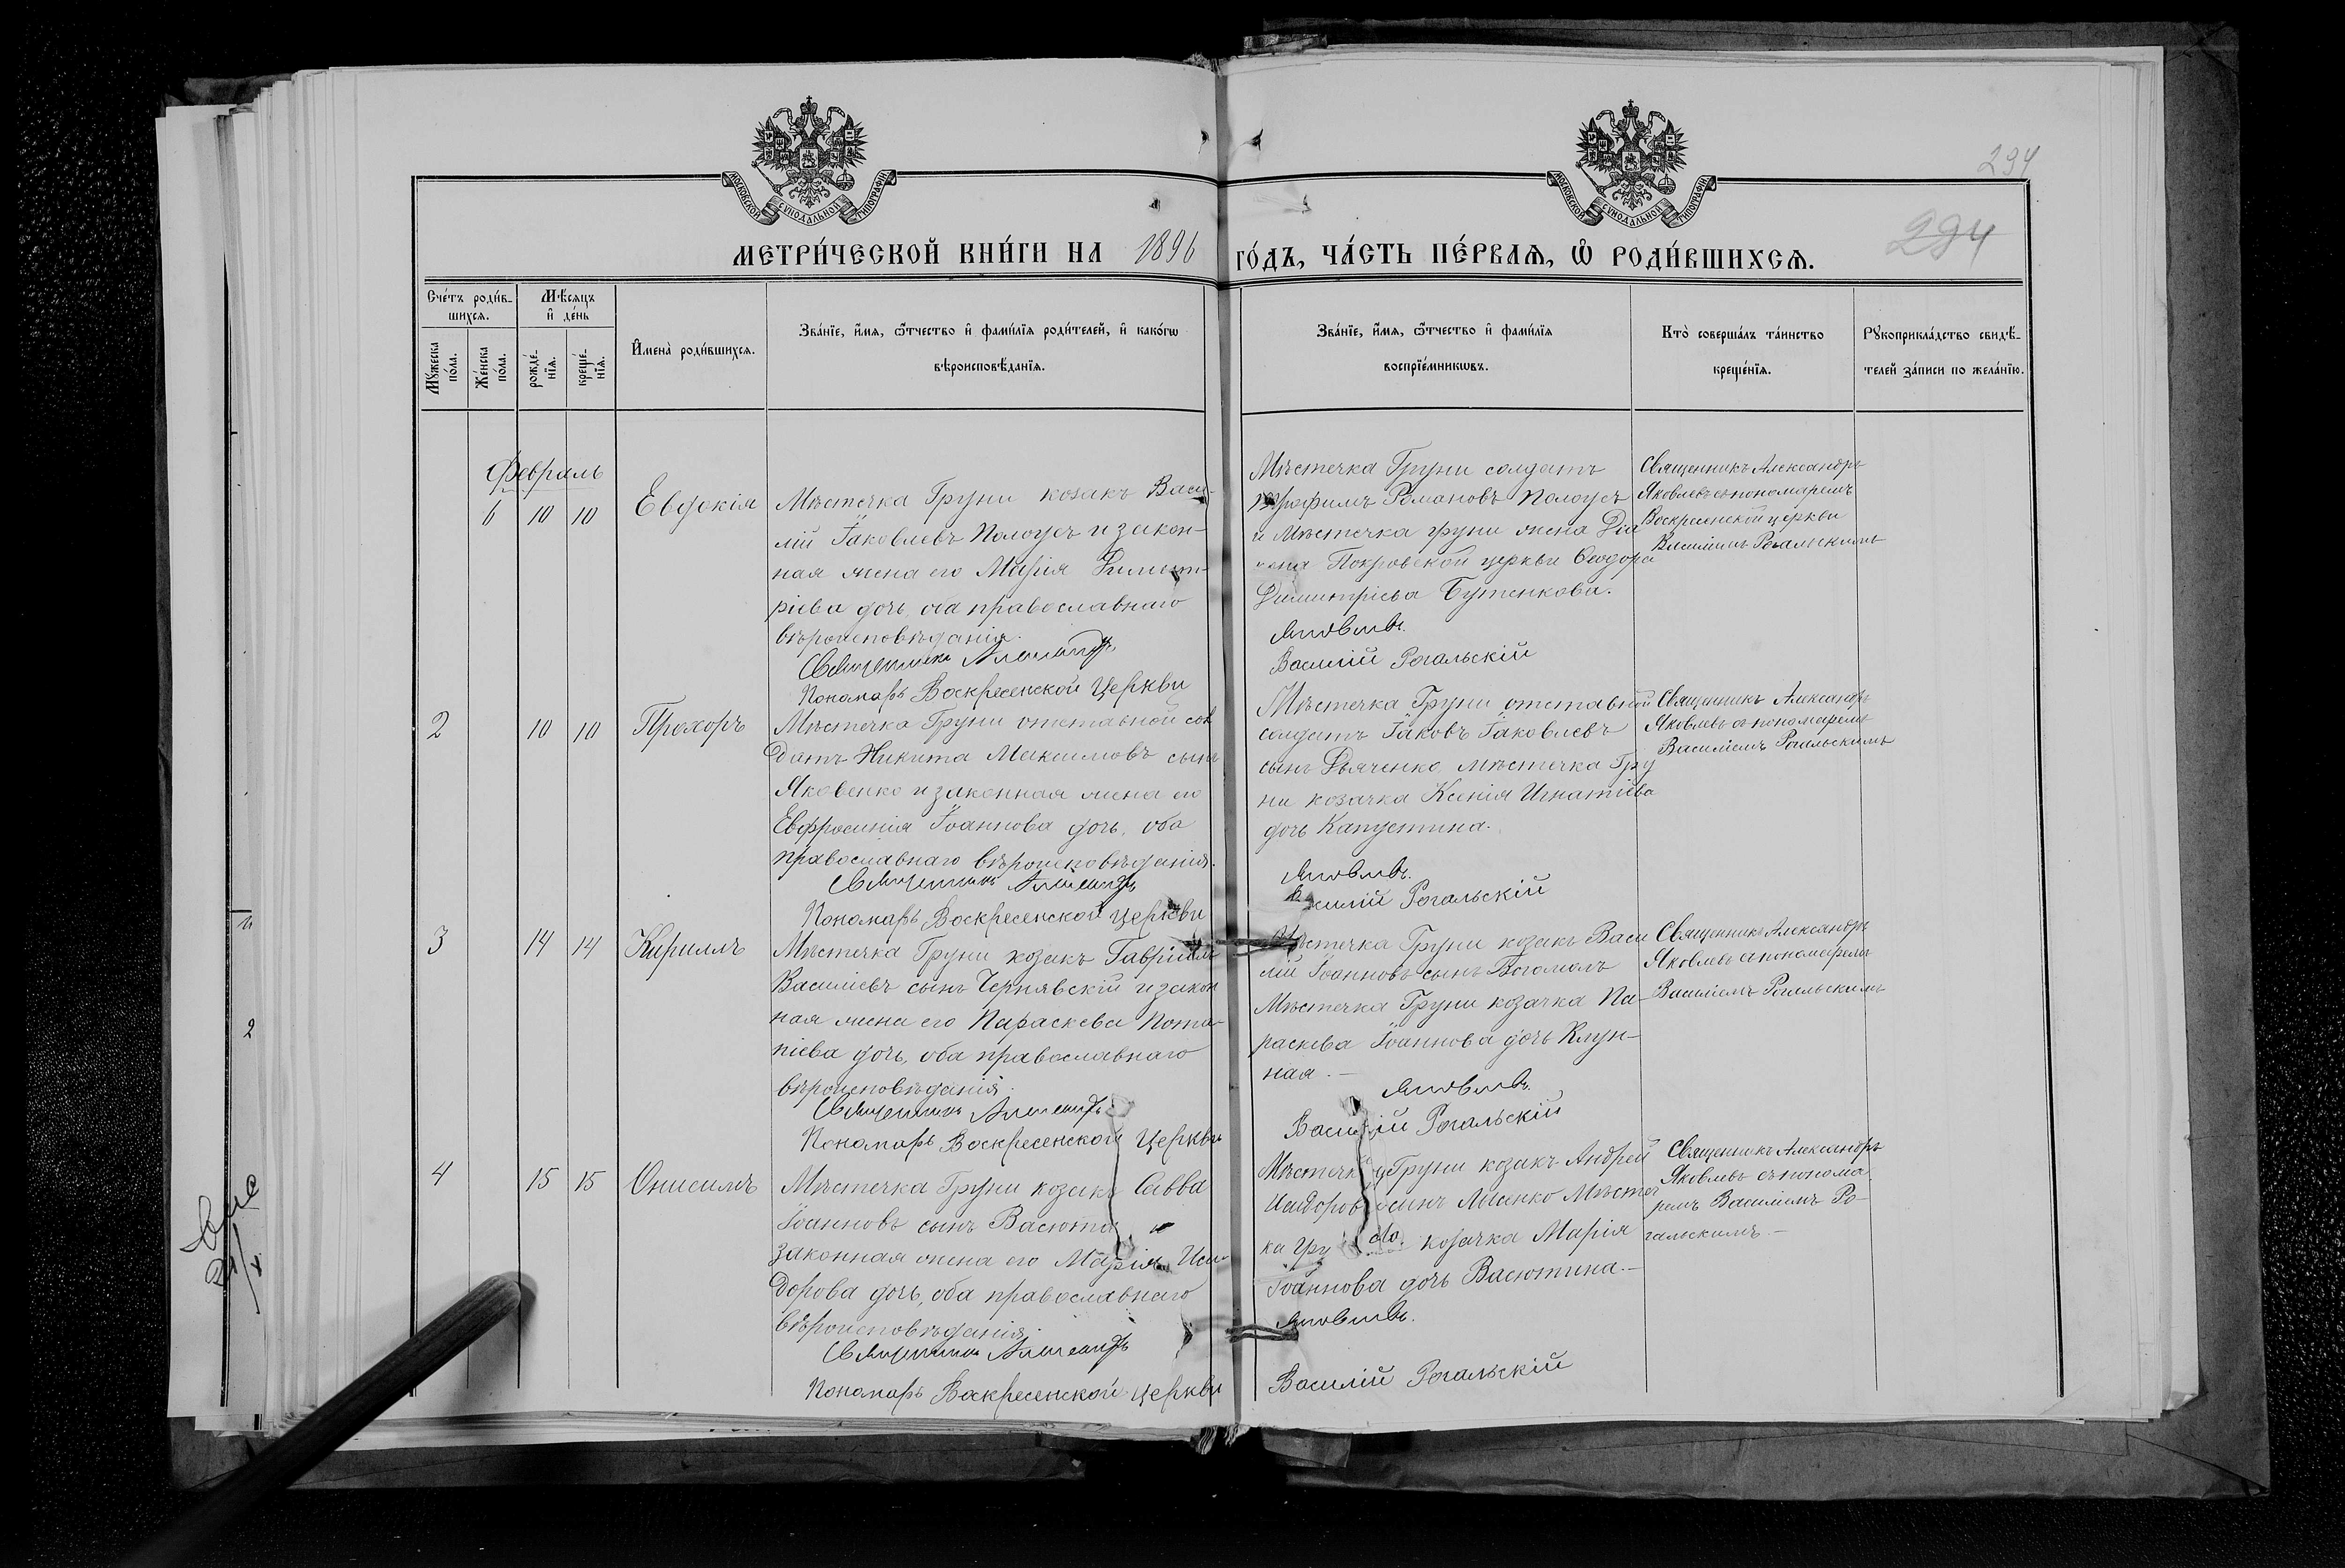 МОСКОВСКОЙ СѴНОДАЛЬНОЙ ТИПОГРАФІИ
МОСКОВСКОЙ СѴНОДАЛЬНОЙ ТИПОГРАФІИ
294
294
МЕТРИ́ЧЕСКОЙ КНИ́ГИ НА 1896 ГО́ДЪ, ЧА́СТЬ ПЕ́РВАѦ, Ѿ РОДИ́ВШИХСѦ.
Сче́тъ роди́в-
шихся.
Мѣ́сяцъ
и҆ де́нь
Мꙋ́жеска
по́ла.
Же́нска
по́ла.
рожде́-
нїя.
креще́-
нїя.
И҆мена̀ роди́вшихся.
Зва́нїе, и҆́мя, ѻ҆́тчество и҆ фами́лїя роди́телей, и҆ како́гѡ
вѣроисповѣ́данїя.
Зва́нїе, и҆́мя, ѻ҆́тчество и҆ фами́лїя
воспрїе́мникѡвъ.
Кто̀ соверша́лъ та́инство
креще́нїя.
Рꙋкоприкла́дство свидѣ́-
телей за́писи по жела́нїю.
Февраль
6 10 10 Евдокія
Мѣстечка Груни козакъ Васи-
лій Іаковлевъ Пологуъ и закон-
ная жена его Марія Димит-
ріева дочь, оба православнаго
вѣроисповѣданія.
Священникъ Александръ
Пономарь Воскресенской Церкви
Мѣстечка Груни солдатъ
Трофимъ Романовъ Пологуъ
и Мѣстечка Груни жена Діа
кона Покровской церкви Ѳеодора
Димитріева Бутенкова.
Яковлевъ.
Василій Рогальскій
Священникъ Александръ
Яковлевъ съ пономаремъ
Воскресенской церкви
Василіемъ Рогальскимъ
2 10 10 Прохоръ
Мѣстечка Груни отставной сол
датъ Никита Максимовъ сынъ
Яковенко и законная жена его
Евфросинія Іоаннова дочь, оба
православнаго вѣроисповѣданія.
Священникъ Александръ
Пономарь Воскресенской Церкви
Мѣстечка Груни отставной
солдатъ Іаковъ Іаковлевъ
сынъ Дьяченко, мѣстечка Гру
ни козачка Ксенія Игнатіева
дочь Капустина.
Яковлевъ.
Василій Рогальскій
Священникъ Александръ
Яковлевъ съ пономаремъ
Василіемъ Рогальскимъ
3 14 14 Кириллъ
Мѣстечка Груни козакъ Гавріилъ
Василіевъ сынъ Чернявскій и закон
ная жена его Параскева Пота-
піева дочь, оба православнаго
вѣроисповѣданія.
Священникъ Александръ
Пономарь Воскресенской Церкви
Мѣстечка Груни козакъ Васи
лій Іоанновъ сынъ Богомолъ
Мѣстечка Груни козачка Па-
раскева Іоаннова дочь Клун-
ная.—
Яковлевъ.
Василій Рогальскій
Священникъ Александръ
Яковлевъ съ пономаремъ
Василіемъ Рогальскимъ
4 15 15 Онисимъ
Мѣстечка Груни козакъ Савва
Іоанновъ сынъ Васюта и
законная жена его Марія Иси-
дорова дочь, оба православнаго
вѣроисповѣданія.
Священникъ Александръ
Пономарь Воскресенской Церкви
Мѣстечка Груни козакъ Андрей
Исидоровъ сынъ Лысенко Мѣстеч
ка Гру козачка Марія
Іоаннова дочь Васютина.—
Яковлевъ.
Василій Рогальскій
Священникъ Александръ
Яковлевъ съ понома
ремъ Василіемъ Ро-
гальскимъ.—
2